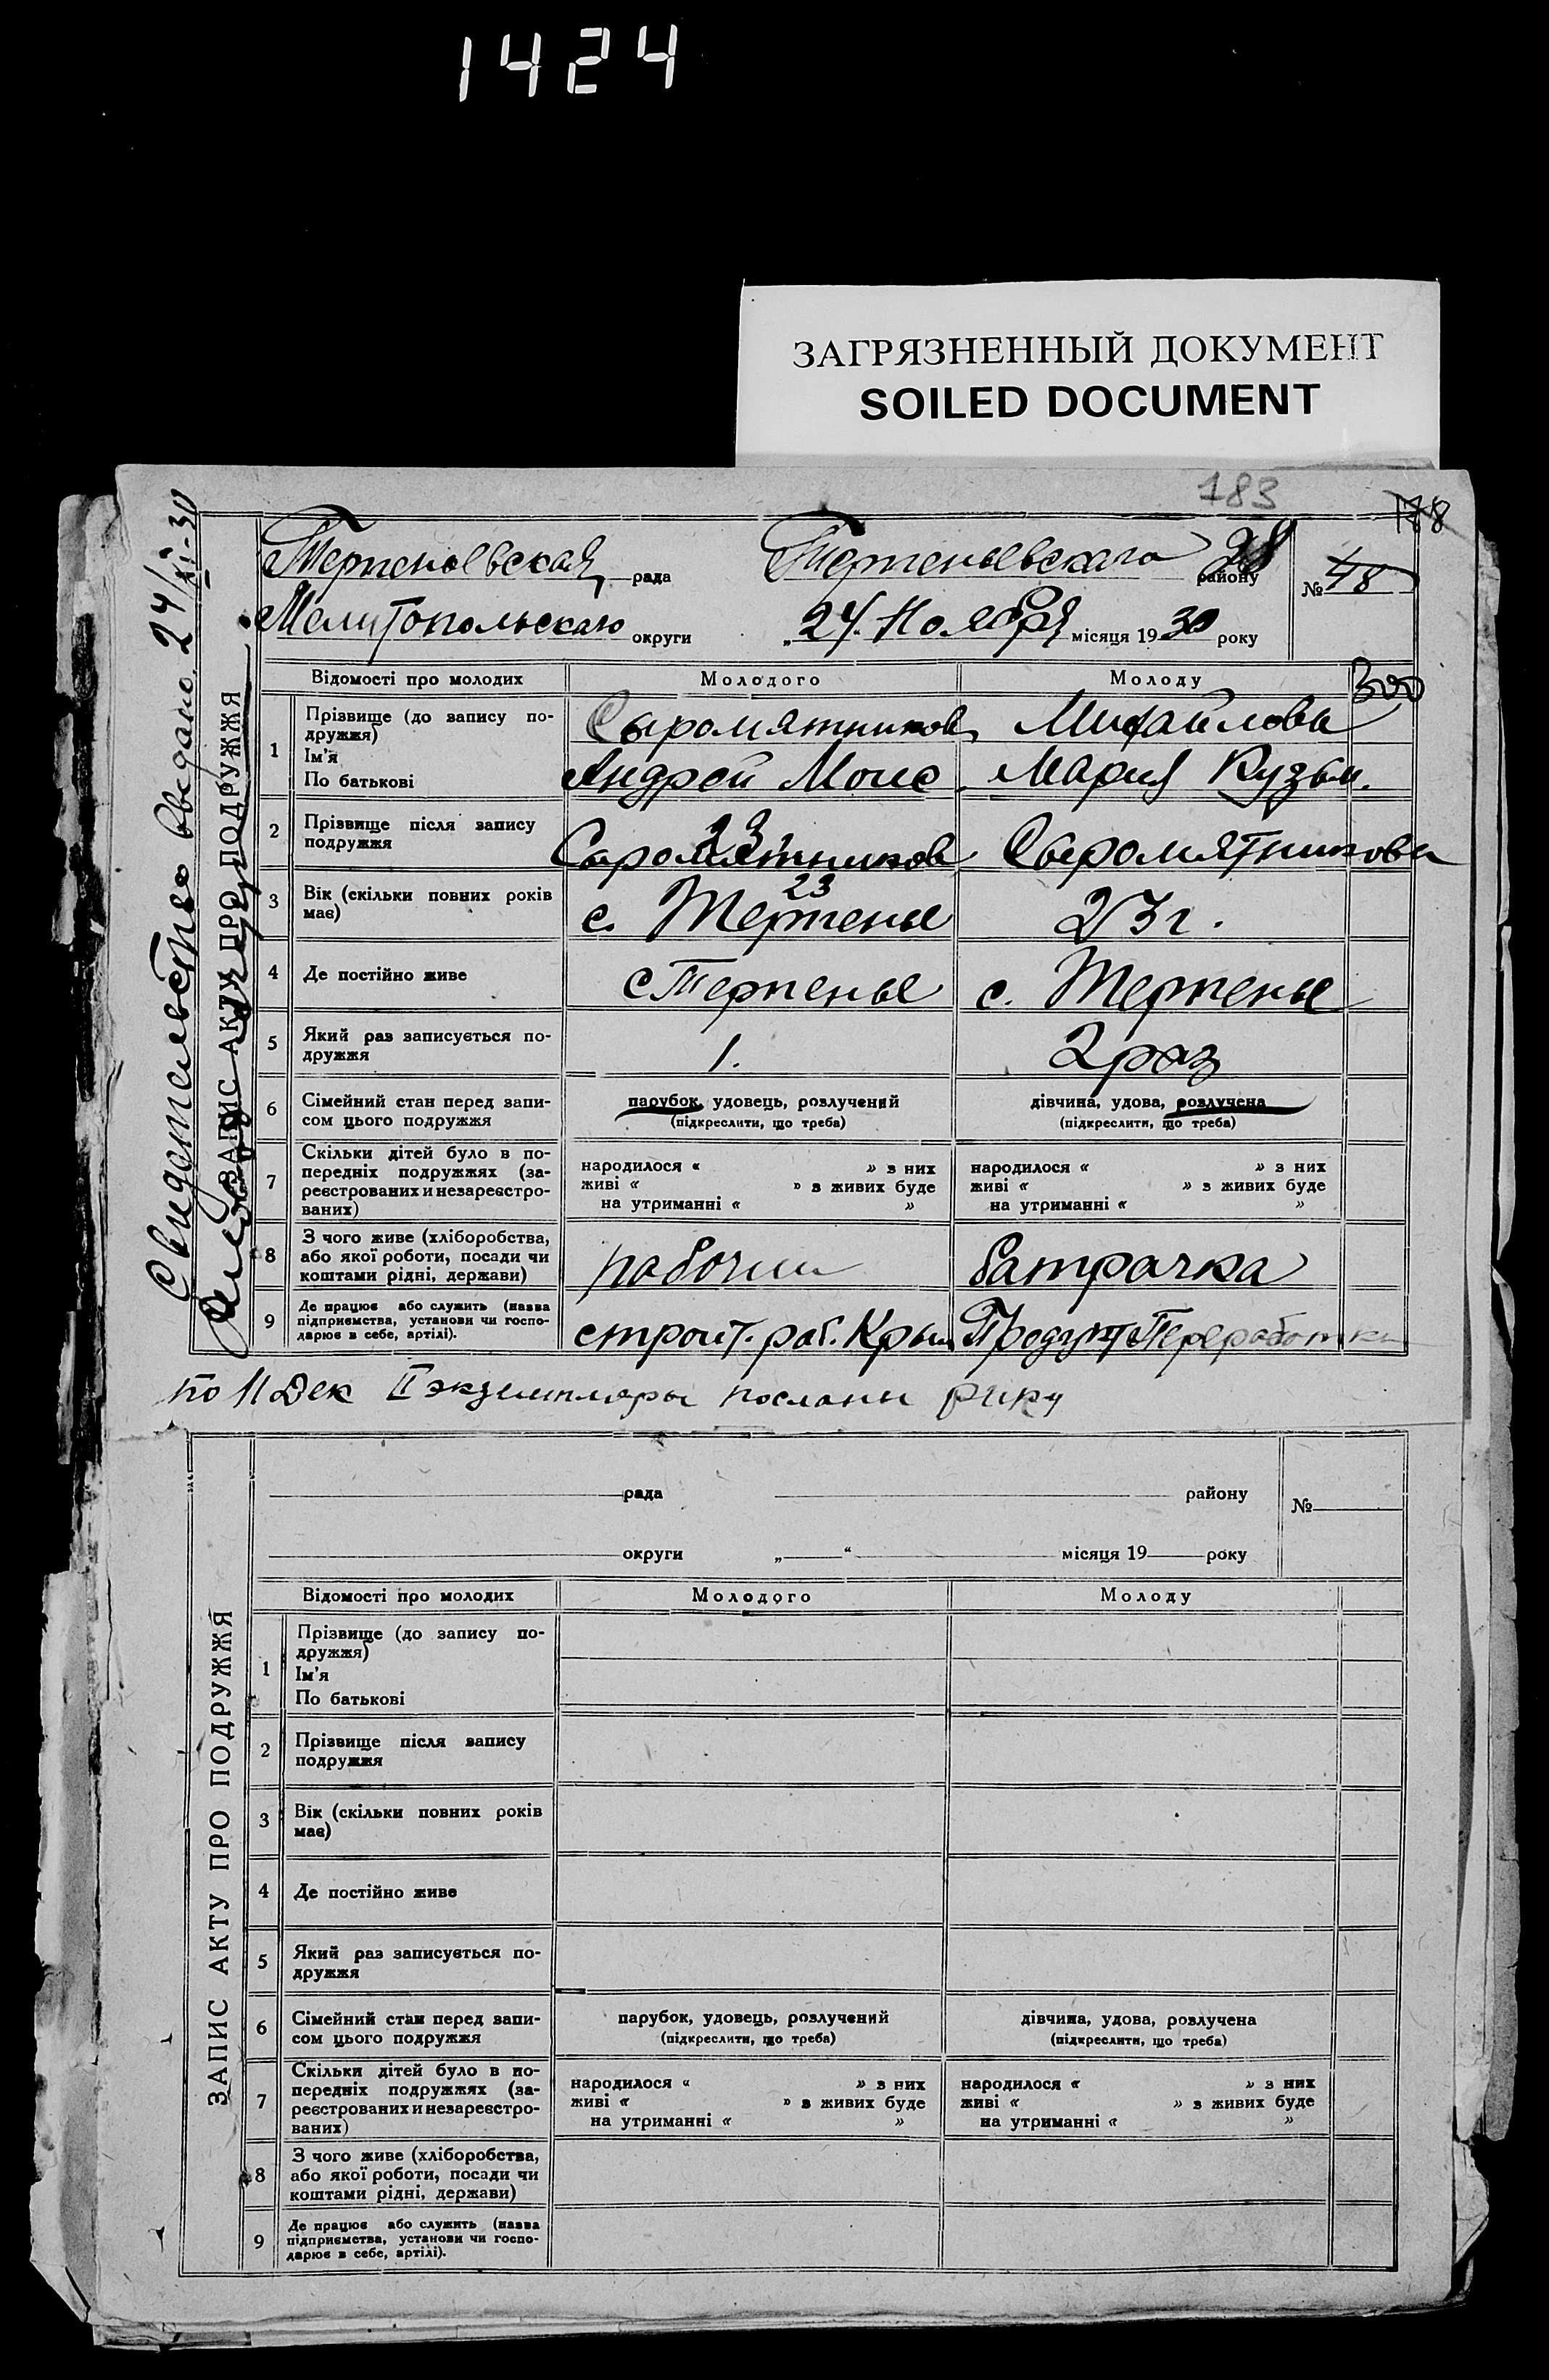 1424
ЗАГРЯЗНЕННЫЙ ДОКУМЕНТ
SOILED DOCUMENT
183
Свидетельство выдано 24/XI-30
ЗАПИС АКТУ ПРО ПОДРУЖЖЯ
Терпеньевская рада Терпеньевского району 28 № 48
Мелитопольскаго округи „24. Ноября місяця 1930 року
Відомості про молодих Молодого Молоду 300
1 Прізвище (до запису по-
дружжя)
Ім'я
По батькові
Сыромятников Михайлова
Андрей Моис. Мария Кузьм.
2 Прізвище після запису
подружжя
23
Сыромятников Сыромятникова
3 Вік (скільки повних років
має)
23
с. Терпенье 23 г.
4 Де постійно живе с Терпенье с. Терпенье
5 Який раз записується по-
дружжя
1. 2 раз
6 Сімейний стан перед запи-
сом цього подружжя
парубок, удовець, розлучений дівчина, удова, розлучена
(підкреслити, що треба) (підкреслити, що треба)
7 Скільки дітей було в по-
передніх подружжях (за-
реєстрованих и незареєстро-
ваних)
народилося « » з них народилося « » з них
живі « » з живих буде живі « » з живих буде
на утриманні « » на утриманні « »
8 З чого живе (хліборобства,
або якої роботи, посади чи
коштами рідні, держави)
рабочий батрачка
9 Де працює або служить (назва
підприємства, установи чи госпо-
дарює в себе, артілі).
строит. раб. Крым Продукт Переработки
по 11 Дек II экземпляры посланы рику
ЗАПИС АКТУ ПРО ПОДРУЖЖЯ
рада району №
округи „ “ місяця 19 року
Відомості про молодих Молодого Молоду
1 Прізвище (до запису по-
дружжя)
Ім'я
По батькові
2 Прізвище після запису
подружжя
3 Вік (скільки повних років
має)
4 Де постійно живе
5 Який раз записується по-
дружжя
6 Сімейний стан перед запи-
сом цього подружжя
парубок, удовець, розлучений дівчина, удова, розлучена
(підкреслити, що треба) (підкреслити, що треба)
7 Скільки дітей було в по-
передніх подружжях (за-
реєстрованих и незареєстро-
ваних)
народилося « » з них народилося « » з них
живі « » з живих буде живі « » з живих буде
на утриманні « » на утриманні « »
8 З чого живе (хліборобства,
або якої роботи, посади чи
коштами рідні, держави)
9 Де працює або служить (назва
підприємства, установи чи госпо-
дарює в себе, артілі).